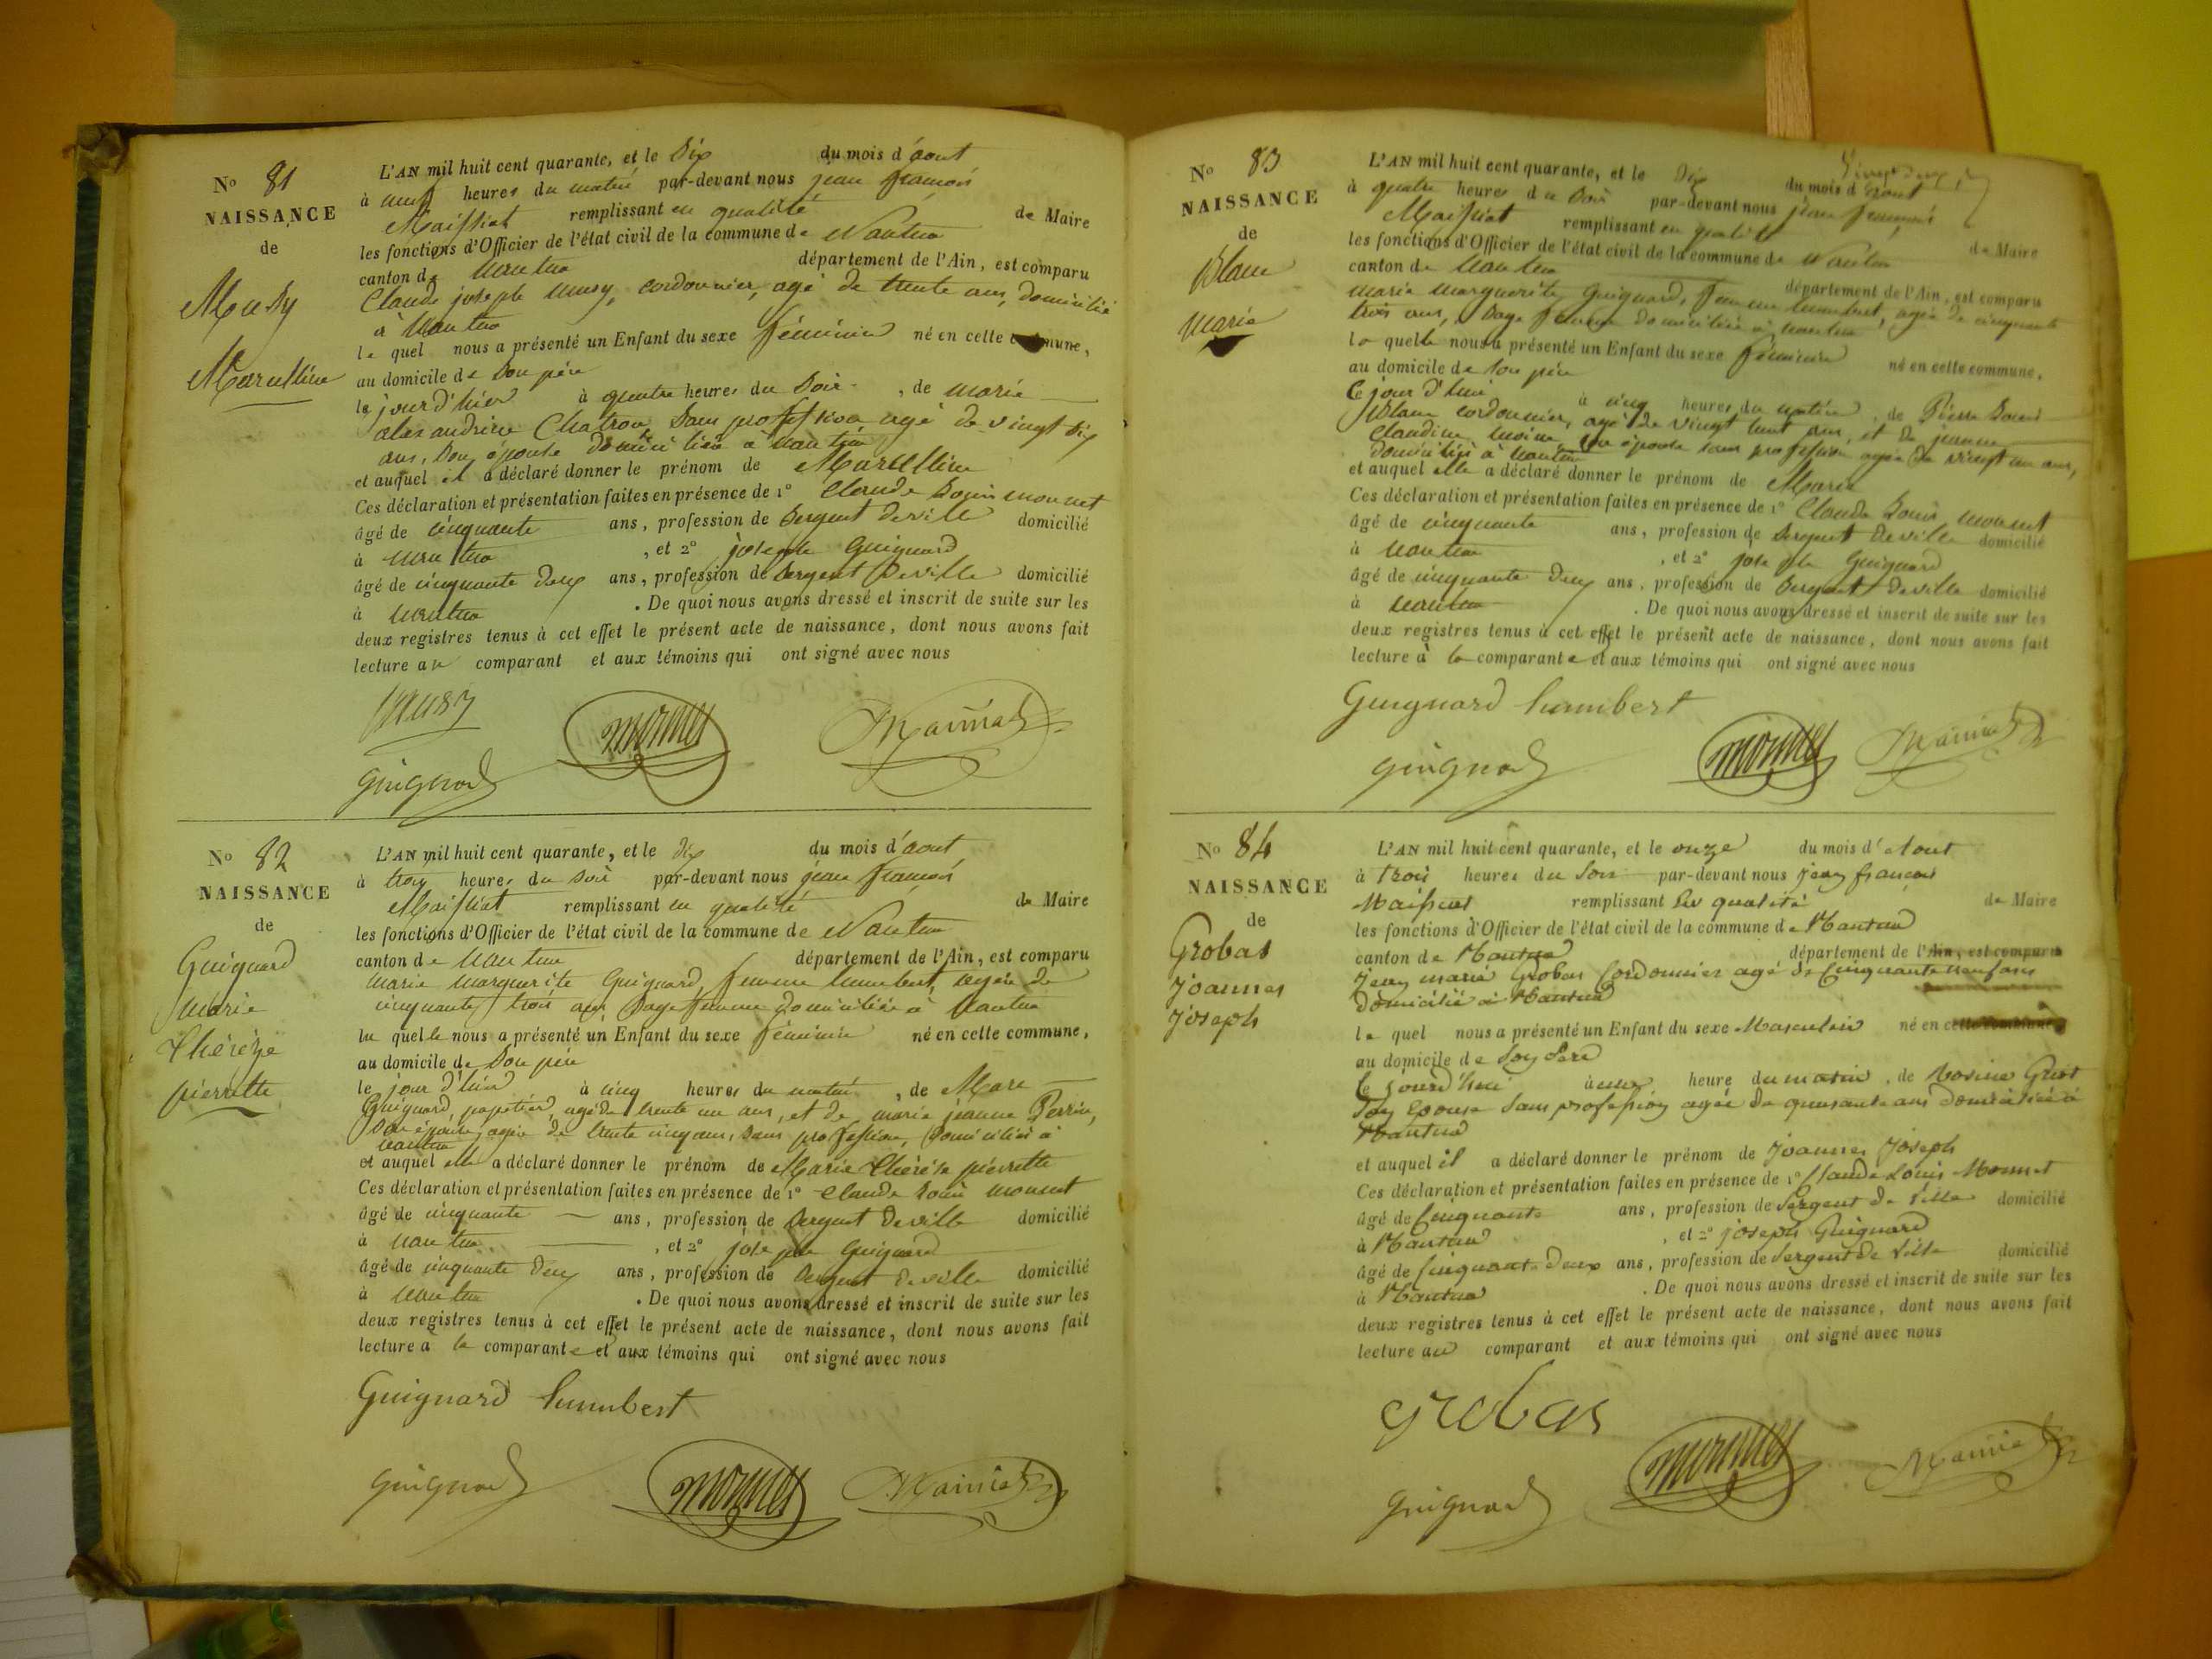 No 81
NAISSANCE
de
Musy
Marcelline
L'AN mil huit cent quarante, et le Dix du mois d'aout
à neuf heures du matin par-devant nous jean françois
Maissiat remplissant en qualité de Maire
les fonctions d'Officier de l'état civil de la commune de Nantua
canton de Nantua département de l'Ain, est comparu
Claude joseph Musy, cordonnier, agé de trente ans, domicilié
à Nantua
le quel nous a présenté un Enfant du sexe féminin né en cette commune,
au domicile de Son père
le jour d'hier à quatre heures du Soir, de marie
alexandrine Chatron Sans profession agé de vingt Six
ans, Son épouse domiciliée à nantua
et auquel il a déclaré donner le prénom de Marcelline
Ces déclaration et présentation faites en présence de 1° Claude Louis monnet
âgé de cinquante ans, profession de Sergent de ville domicilié
à nantua, et 2° joseph Guignard
âgé de cinquante deux ans, profession de Sergent de ville domicilié
à nantua. De quoi nous avons dressé et inscrit de suite sur les
deux registres tenus à cet effet le présent acte de naissance, dont nous avons fait
lecture au comparant et aux témoins qui ont signé avec nous
Musy monnet Maissiat
guignard
No 82
NAISSANCE
de
Guignard
Marie
Thérèze
pierrette
L'AN mil huit cent quarante, et le dix du mois d'aout
à trois heures du soir par-devant nous jean françois
Maissiat remplissant en qualité de Maire
les fonctions d'Officier de l'état civil de la commune de Nantua
canton de Nantua département de l'Ain, est comparu
marie marguerite Guignard, femme humbert, agée de
cinquante trois ans Sage femme domiciliée à Nantua
la quelle nous a présenté un Enfant du sexe féminin né en cette commune,
au domicile de Son père
le jour d'hier à cinq heures du matin, de Marc
Guignard, papetier, agé de trente un ans, et de marie jeanne Perrin,
Son épouse, agée de trente cinq ans, Sans profession, Domiciliés à
nantua
et auquel elle a déclaré donner le prénom de Marie Thérèse pierrette
Ces déclaration et présentation faites en présence de 1° Claude Louis monnet
âgé de cinquante ans, profession de Sergent de ville domicilié
à nantua, et 2° joseph Guignard
âgé de cinquante deux ans, profession de Sergent de ville domicilié
à nantua. De quoi nous avons dressé et inscrit de suite sur les
deux registres tenus à cet effet le présent acte de naissance, dont nous avons fait
lecture à la comparante et aux témoins qui ont signé avec nous
Guignard humbert
guignard monnet Maissiat
No 83
NAISSANCE
de
Blanc
Marie
L'AN mil huit cent quarante, et le Dix du mois d'aout
à quatre heures du Soir par-devant nous jean françois
Maissiat remplissant en qualité de Maire
les fonctions d'Officier de l'état civil de la commune de Nantua
canton de Nantua département de l'Ain, est comparu
marie marguerite Guignard, femme humbert, agée de cinquante
trois ans, Sage femme domiciliée à nantua
la quelle nous a présenté un Enfant du sexe féminin né en cette commune,
au domicile de son père
Ce jour d'hui à cinq heures du matin, de Pierre Louis
Blanc cordonnier, agé de vingt huit ans, et de jeanne
Claudine moine, son épouse sans profession agée de vingt un ans,
domiciliés à nantua
et auquel elle a déclaré donner le prénom de Marie
Ces déclaration et présentation faites en présence de 1° Claude Louis monnet
âgé de cinquante ans, profession de Sergent de ville domicilié
à nantua, et 2° joseph Guignard
âgé de cinquante deux ans, profession de Sergent de ville domicilié
à nantua. De quoi nous avons dressé et inscrit de suite sur les
deux registres tenus à cet effet le présent acte de naissance, dont nous avons fait
lecture à la comparante et aux témoins qui ont signé avec nous
Guignard humbert
guignard monnet Maissiat
No 84
NAISSANCE
de
Grobas
Joannes
Joseph
L'AN mil huit cent quarante, et le onze du mois d'Aout
à trois heures du Soir par-devant nous jean françois
Maissiat remplissant En qualité de Maire
les fonctions d'Officier de l'état civil de la commune de Nantua
canton de Nantua département de l'Ain, est comparu
Jean marie Grobas Cordonnier agé de Cinquante neuf ans
domicilié à Nantua
le quel nous a présenté un Enfant du sexe Masculin né en cette commune
au domicile de Son Père
Ce jourd'hui à une heure du matin, de Rosine
Son Epouse Sans profession agée de quarante ans domiciliée à
Nantua
et auquel il a déclaré donner le prénom de Joannes Joseph
Ces déclaration et présentation faites en présence de 1° Claude Louis Monnet
âgé de Cinquante ans, profession de Sergent de Ville domicilié
à Nantua, et 2° joseph Guignard
âgé de Cinquante Deux ans, profession de Sergent de Ville domicilié
à Nantua. De quoi nous avons dressé et inscrit de suite sur les
deux registres tenus à cet effet le présent acte de naissance, dont nous avons fait
lecture au comparant et aux témoins qui ont signé avec nous
grobas
guignard monnet Maissiat